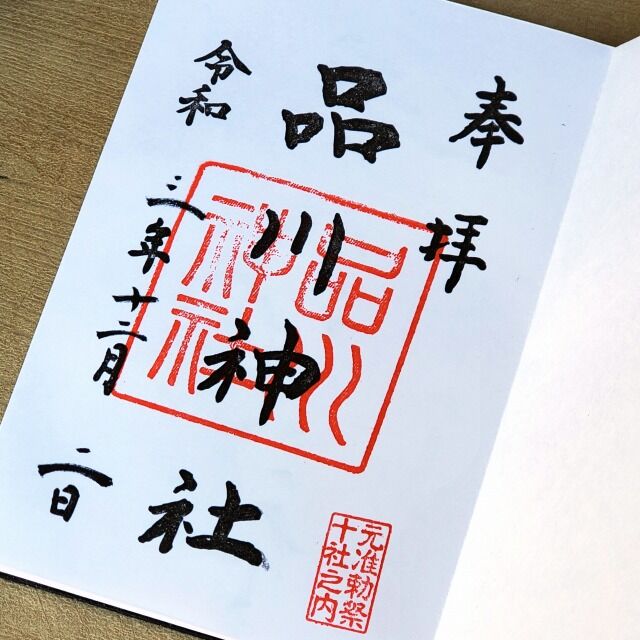 奉拝
品川神社
令和三年十二月二日
品川
神社
元准勅祭
十社之内